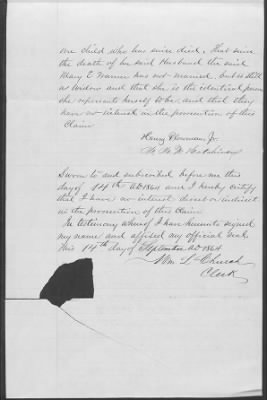 one child who has since died, That since
the death of her said Husband the said
Mary E has not married, but is still
a widow and that she is the identical person
she represents herself to be, and that they
have no interest in the prosecution of this
Claim
Henry Plowman Jr.
Hutchinson
Sworn to and subscribed before me this
day of 14th AD 1864 and I hereby certify
that I have no interest direct or indirect
in the prosecution of this Claim
In testimony whereof I have hereunto signed
my name and affixed my official Seal
this 14th day of September AD 1864
Wm L Church
Clerk